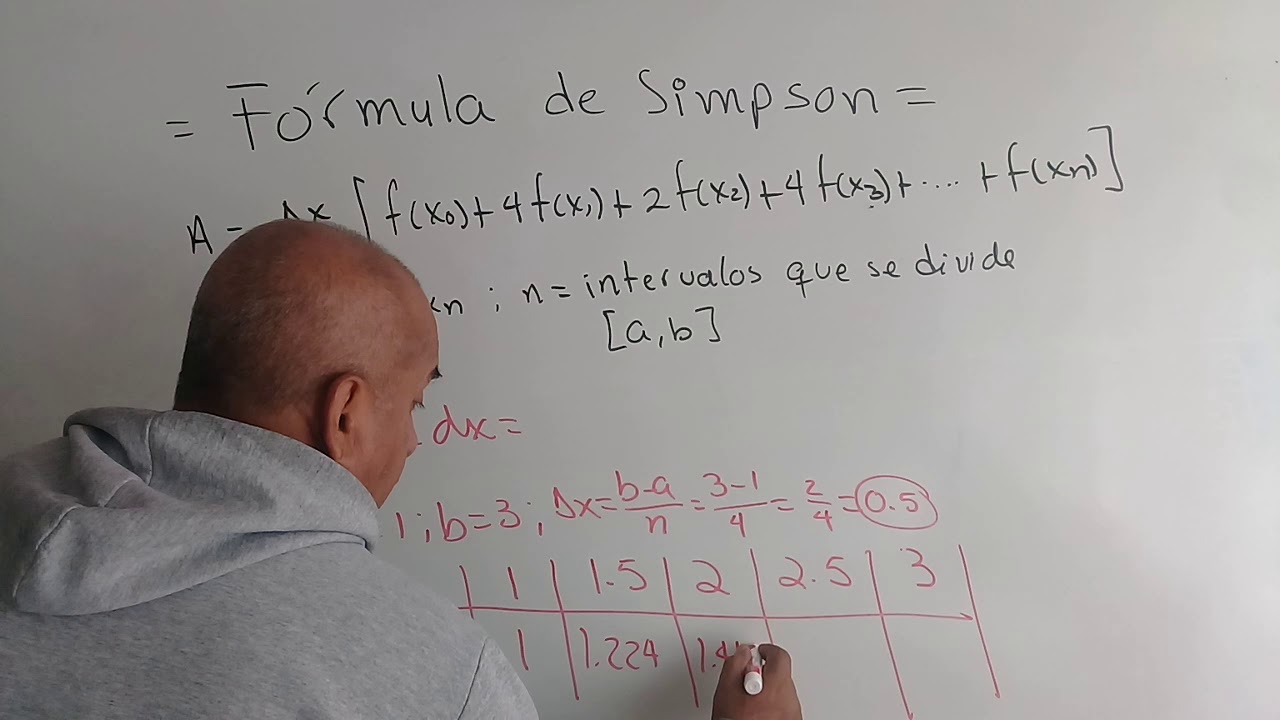 = Fórmula de Simpson =
A = Δx [f(x₀)+4f(x₁)+2f(x₂)+4f(x₃)+....+f(xn)]
<n ; n = intervalos que se divide
[a,b]
dx=
1 ; b=3 ; Δx= b-a/n = 3-1/4 = 2/4 = 0.5
1 | 1.5 | 2 | 2.5 | 3
1 | 1.224